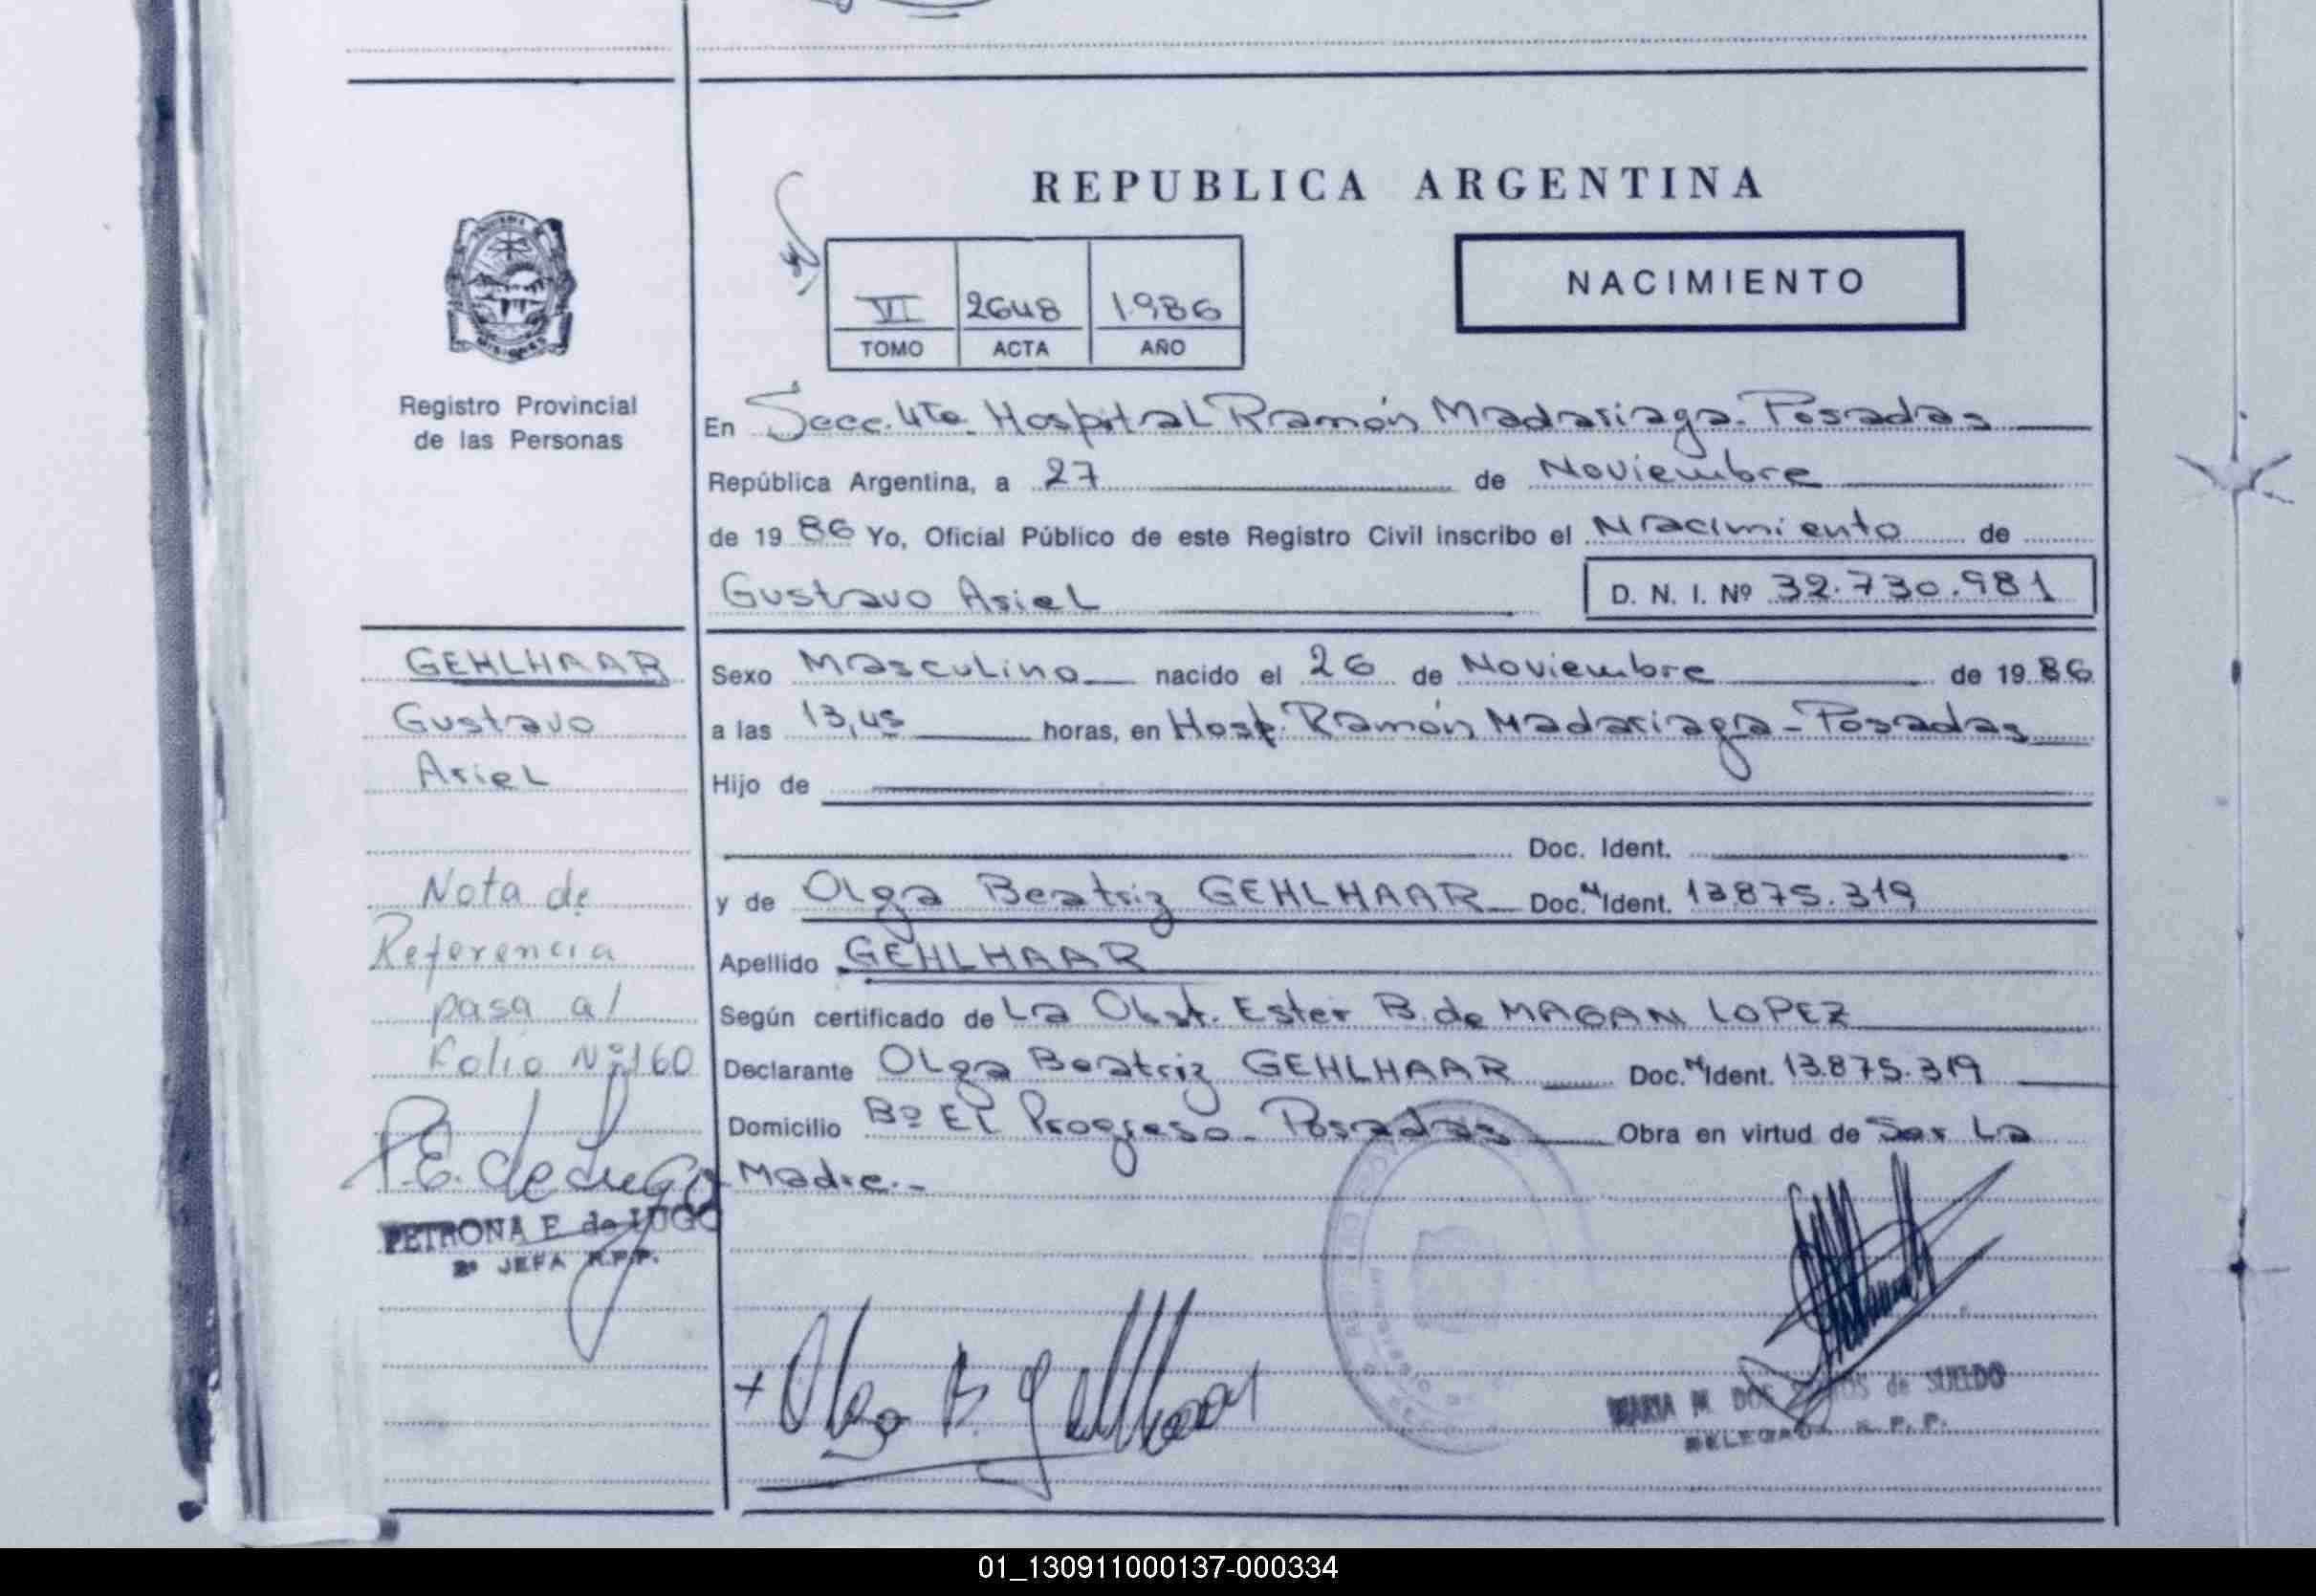 REPUBLICA ARGENTINA
NACIMIENTO
VI 2648 1.986
TOMO ACTA AÑO
Registro Provincial
de las Personas
En Secc. 4ta. Hospital Ramón Madariaga. Posadas
República Argentina, a 27 de Noviembre
de 19 86 Yo, Oficial Público de este Registro Civil inscribo el Nacimiento de
Gustavo Ariel D. N. I. Nº 32.730.981
GEHLHAAR
Gustavo
Ariel
Sexo Masculino nacido el 26 de Noviembre de 19 86
a las 13,45 horas, en Hosp. Ramón Madariaga - Posadas
Hijo de
Doc. Ident.
y de Olga Beatriz GEHLHAAR Doc. N Ident. 13875.319
Apellido GEHLHAAR
Según certificado de La Obst. Ester B. de MAGAN LOPEZ
Declarante Olga Beatriz GEHLHAAR Doc. N Ident. 13.875.319
Domicilio Bº El Progreso - Posadas Obra en virtud de Ser La
Madre.-
Nota de
Referencia
pasa al
Folio Nº 160
P.E. de Lugo
PETRONA E. de LUGO
2ª JEFA R.P.P.
+ Olga B. Gehlhaar
MARIA M. DOS SANTOS de SUELDO
DELEGADA R. P. P.
01_130911000137-000334